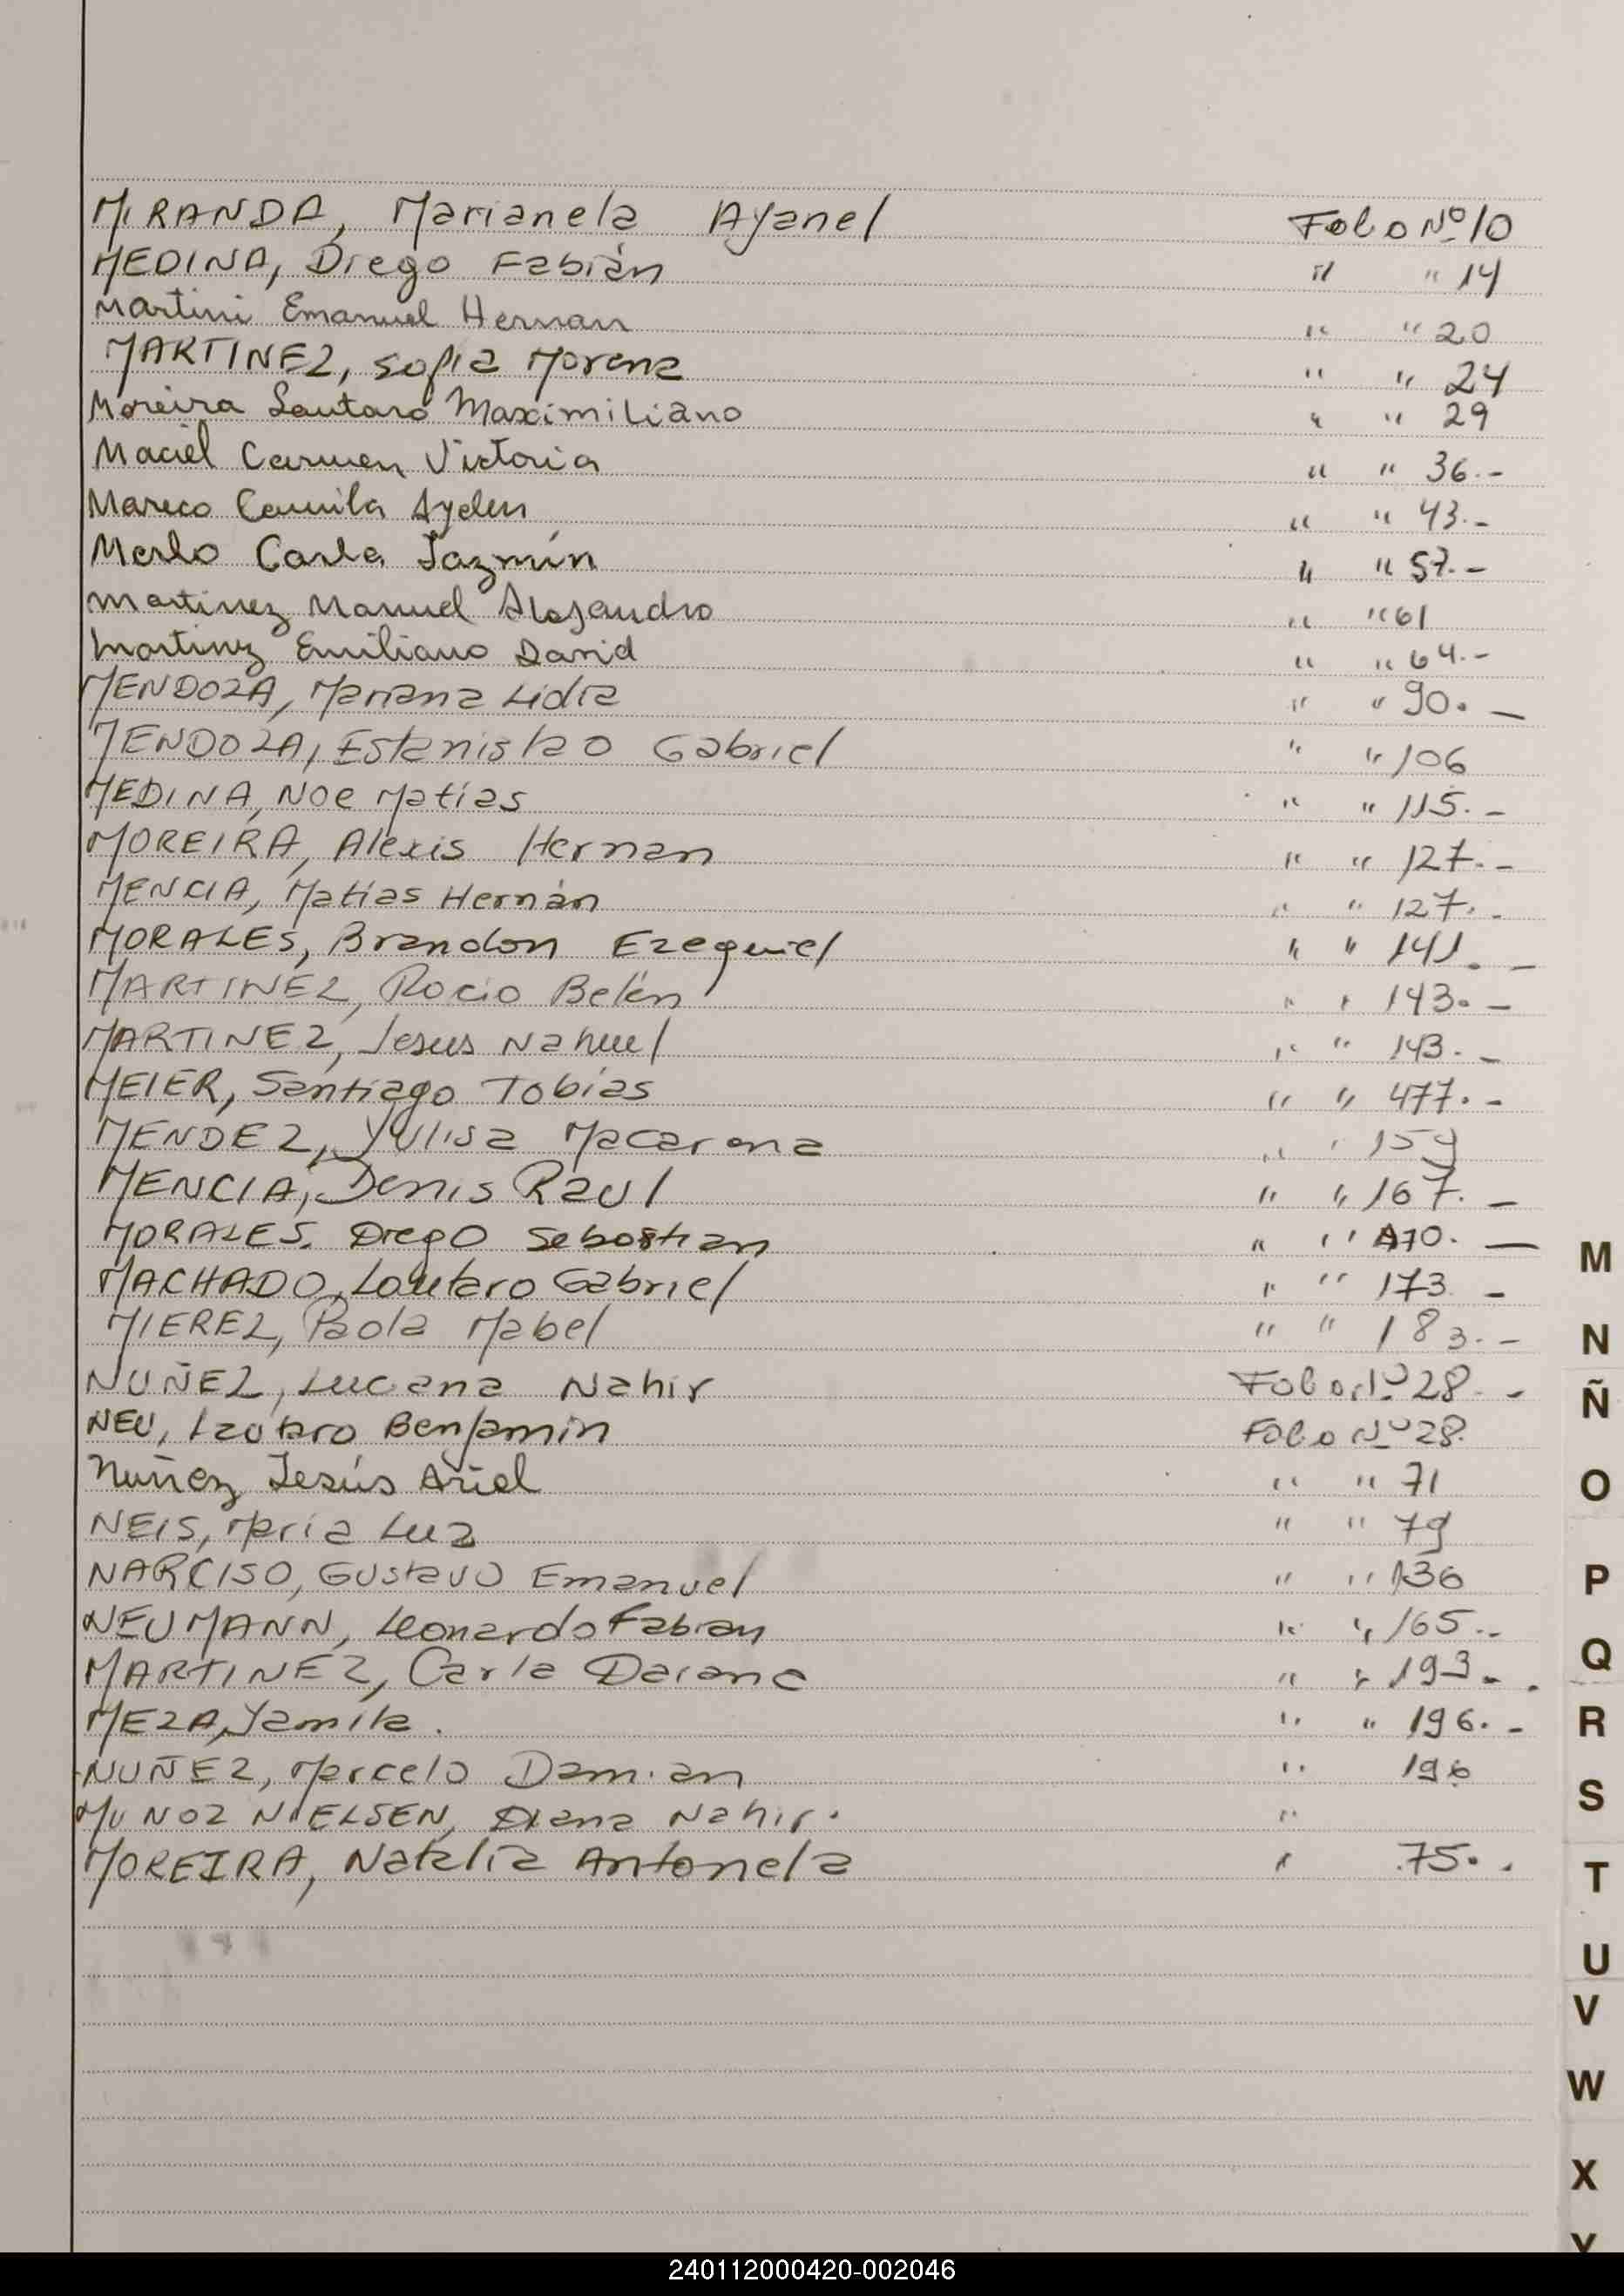 MIRANDA, Marianela Ayanel Folio Nº 10
MEDINA, Diego Fabián " " 14
Martini Emanuel Hernan " " 20
MARTINEZ, Sofia Morena " " 24
Moreira Lautaro Maximiliano " " 29
Maciel Carmen Victoria " " 36.-
Mareco Camila Ayelen " " 43.-
Merlo Carla Jazmín " " 57.-
Martinez Manuel Alejandro " " 61
Martinez Emiliano David " " 64.-
MENDOZA, Mariana Lidia " " 90. -
MENDOZA, Estanislao Gabriel " " 106
MEDINA, Noe Matías " " 115. -
MOREIRA, Alexis Hernan " " 127. -
MENCIA, Matías Hernán " " 127. -
MORALES, Brandon Ezequiel " " 141. -
MARTINEZ, Rocio Belén " " 143. -
MARTINEZ, Jesus Nahuel " " 143. -
MEIER, Santiago Tobías " " 477. -
MENDEZ, Yulisa Macarena " " 159
MENCIA, Denis Raul " " 167. -
MORALES. Diego Sebastian " " 170. -
MACHADO, Lautaro Gabriel " " 173 -
MIEREZ, Paola Mabel " " 183. -
NUÑEZ, Luciana Nahir Folio Nº 28. -
NEU, Lautaro Benjamín Folio Nº 28.
Nuñez Jesús Ariel " " 71
NEIS, María Luz " " 79
NARCISO, Gustavo Emanuel " " 136
NEUMANN, Leonardo Fabian " " 165. -
MARTINEZ, Carla Daiana " " 193 - .
MEZA, Yamila. " " 196. -
NUÑEZ, Marcelo Damian " 196
MUNOZ NIELSEN, Diana Nahir. "
MOREIRA, Natalia Antonela " 75. .
M
N
Ñ
O
P
Q
R
S
T
U
V
W
X
Y
240112000420-002046